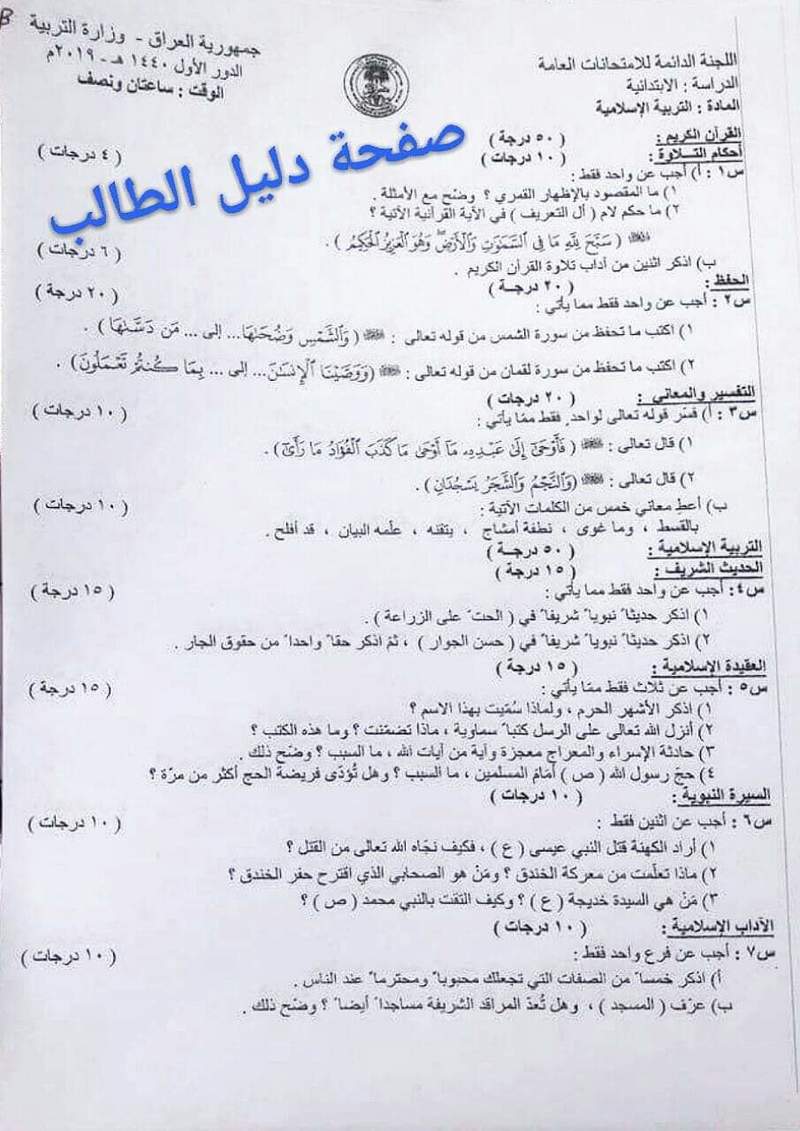 B
جمهورية العراق - وزارة التربية
الدور الأول ١٤٤٠ هـ - ٢٠١٩م
الوقت : ساعتان ونصف
اللجنة الدائمة للامتحانات العامة
الدراسة : الابتدائية
المادة : التربية الإسلامية
صفحة دليل الطالب
القرآن الكريم : ( ٥٠ درجة )
أحكام التلاوة : ( ١٠ درجات )
س١ : أ) أجب عن واحد فقط : ( ٤ درجات )
١) ما المقصود بالإظهار القمري ؟ وضّح مع الأمثلة .
٢) ما حكم لام ( أل التعريف ) في الآية القرآنية الآتية ؟
﷽ ( سَبَّحَ لِلَّهِ مَا فِي السَّمَٰوَٰتِ وَالْأَرْضِ ۖ وَهُوَ الْعَزِيزُ الْحَكِيمُ ) .
ب) اذكر اثنين من آداب تلاوة القرآن الكريم . ( ٦ درجات )
الحفظ : ( ٢٠ درجـة )
س٢ : أجب عن واحد فقط مما يأتي : ( ٢٠ درجة )
١) اكتب ما تحفظ من سورة الشمس من قوله تعالى : ﷽ ( وَالشَّمْسِ وَضُحَىٰهَا... إلى ... مَن دَسَّىٰهَا ) .
٢) اكتب ما تحفظ من سورة لقمان من قوله تعالى : ﷽ (وَوَصَّيْنَا الْإِنسَٰنَ... إلى ... بِمَا كُنتُمْ تَعْمَلُونَ) .
التفسير والمعاني : ( ٢٠ درجات )
س٣ : أ) فسّر قوله تعالى لواحد فقط ممّا يأتي : ( ١٠ درجات )
١) قال تعالى : ﷽ ( فَأَوْحَىٰ إِلَىٰ عَبْدِهِ مَا أَوْحَىٰ مَا كَذَبَ الْفُؤَادُ مَا رَأَىٰ ) .
٢) قال تعالى : ﷽ (وَالنَّجْمُ وَالشَّجَرُ يَسْجُدَانِ ) .
ب) أعطِ معاني خمس من الكلمات الآتية : ( ١٠ درجات )
بالقسط ، وما غوى ، نطفة أمشاج ، يتقنه ، علّمه البيان ، قد أفلح .
التربية الإسلامية : ( ٥٠ درجـة )
الحديث الشريف : ( ١٥ درجة )
س٤ : أجب عن واحد فقط مما يأتي : ( ١٥ درجة )
١) اذكر حديثاً نبوياً شريفاً في ( الحث على الزراعة ) .
٢) اذكر حديثاً نبوياً شريفاً في ( حسن الجوار ) ، ثمّ اذكر حقاً واحداً من حقوق الجار .
العقيدة الإسلامية : ( ١٥ درجة )
س٥ : أجب عن ثلاث فقط ممّا يأتي : ( ١٥ درجة )
١) اذكر الأشهر الحرم ، ولماذا سُمّيت بهذا الاسم ؟
٢) أنزل الله تعالى على الرسل كتباً سماوية ، ماذا تضمّنت ؟ وما هذه الكتب ؟
٣) حادثة الإسراء والمعراج معجزة وآية من آيات الله ، ما السبب ؟ وضّح ذلك .
٤) حجّ رسول الله ( ص ) أمَامَ المسلمين ، ما السبب ؟ وهل تُؤدّى فريضة الحج أكثر من مرّة ؟
السيرة النبوية : ( ١٠ درجات )
س٦ : أجب عن اثنين فقط : ( ١٠ درجات )
١) أراد الكهنة قتل النبي عيسى ( ع ) ، فكيف نجّاه الله تعالى من القتل ؟
٢) ماذا تعلّمت من معركة الخندق ؟ ومَنْ هو الصحابي الذي اقترح حفر الخندق ؟
٣) مَنْ هي السيدة خديجة ( ع ) ؟ وكيف التقت بالنبي محمد ( ص ) ؟
الآداب الإسلامية : ( ١٠ درجات )
س٧ : أجب عن فرع واحد فقط : ( ١٠ درجات )
أ) اذكر خمساً من الصفات التي تجعلك محبوباً ومحترماً عند الناس .
ب) عرّف ( المسجد ) ، وهل تُعدّ المراقد الشريفة مساجداً أيضاً ؟ وضّح ذلك .